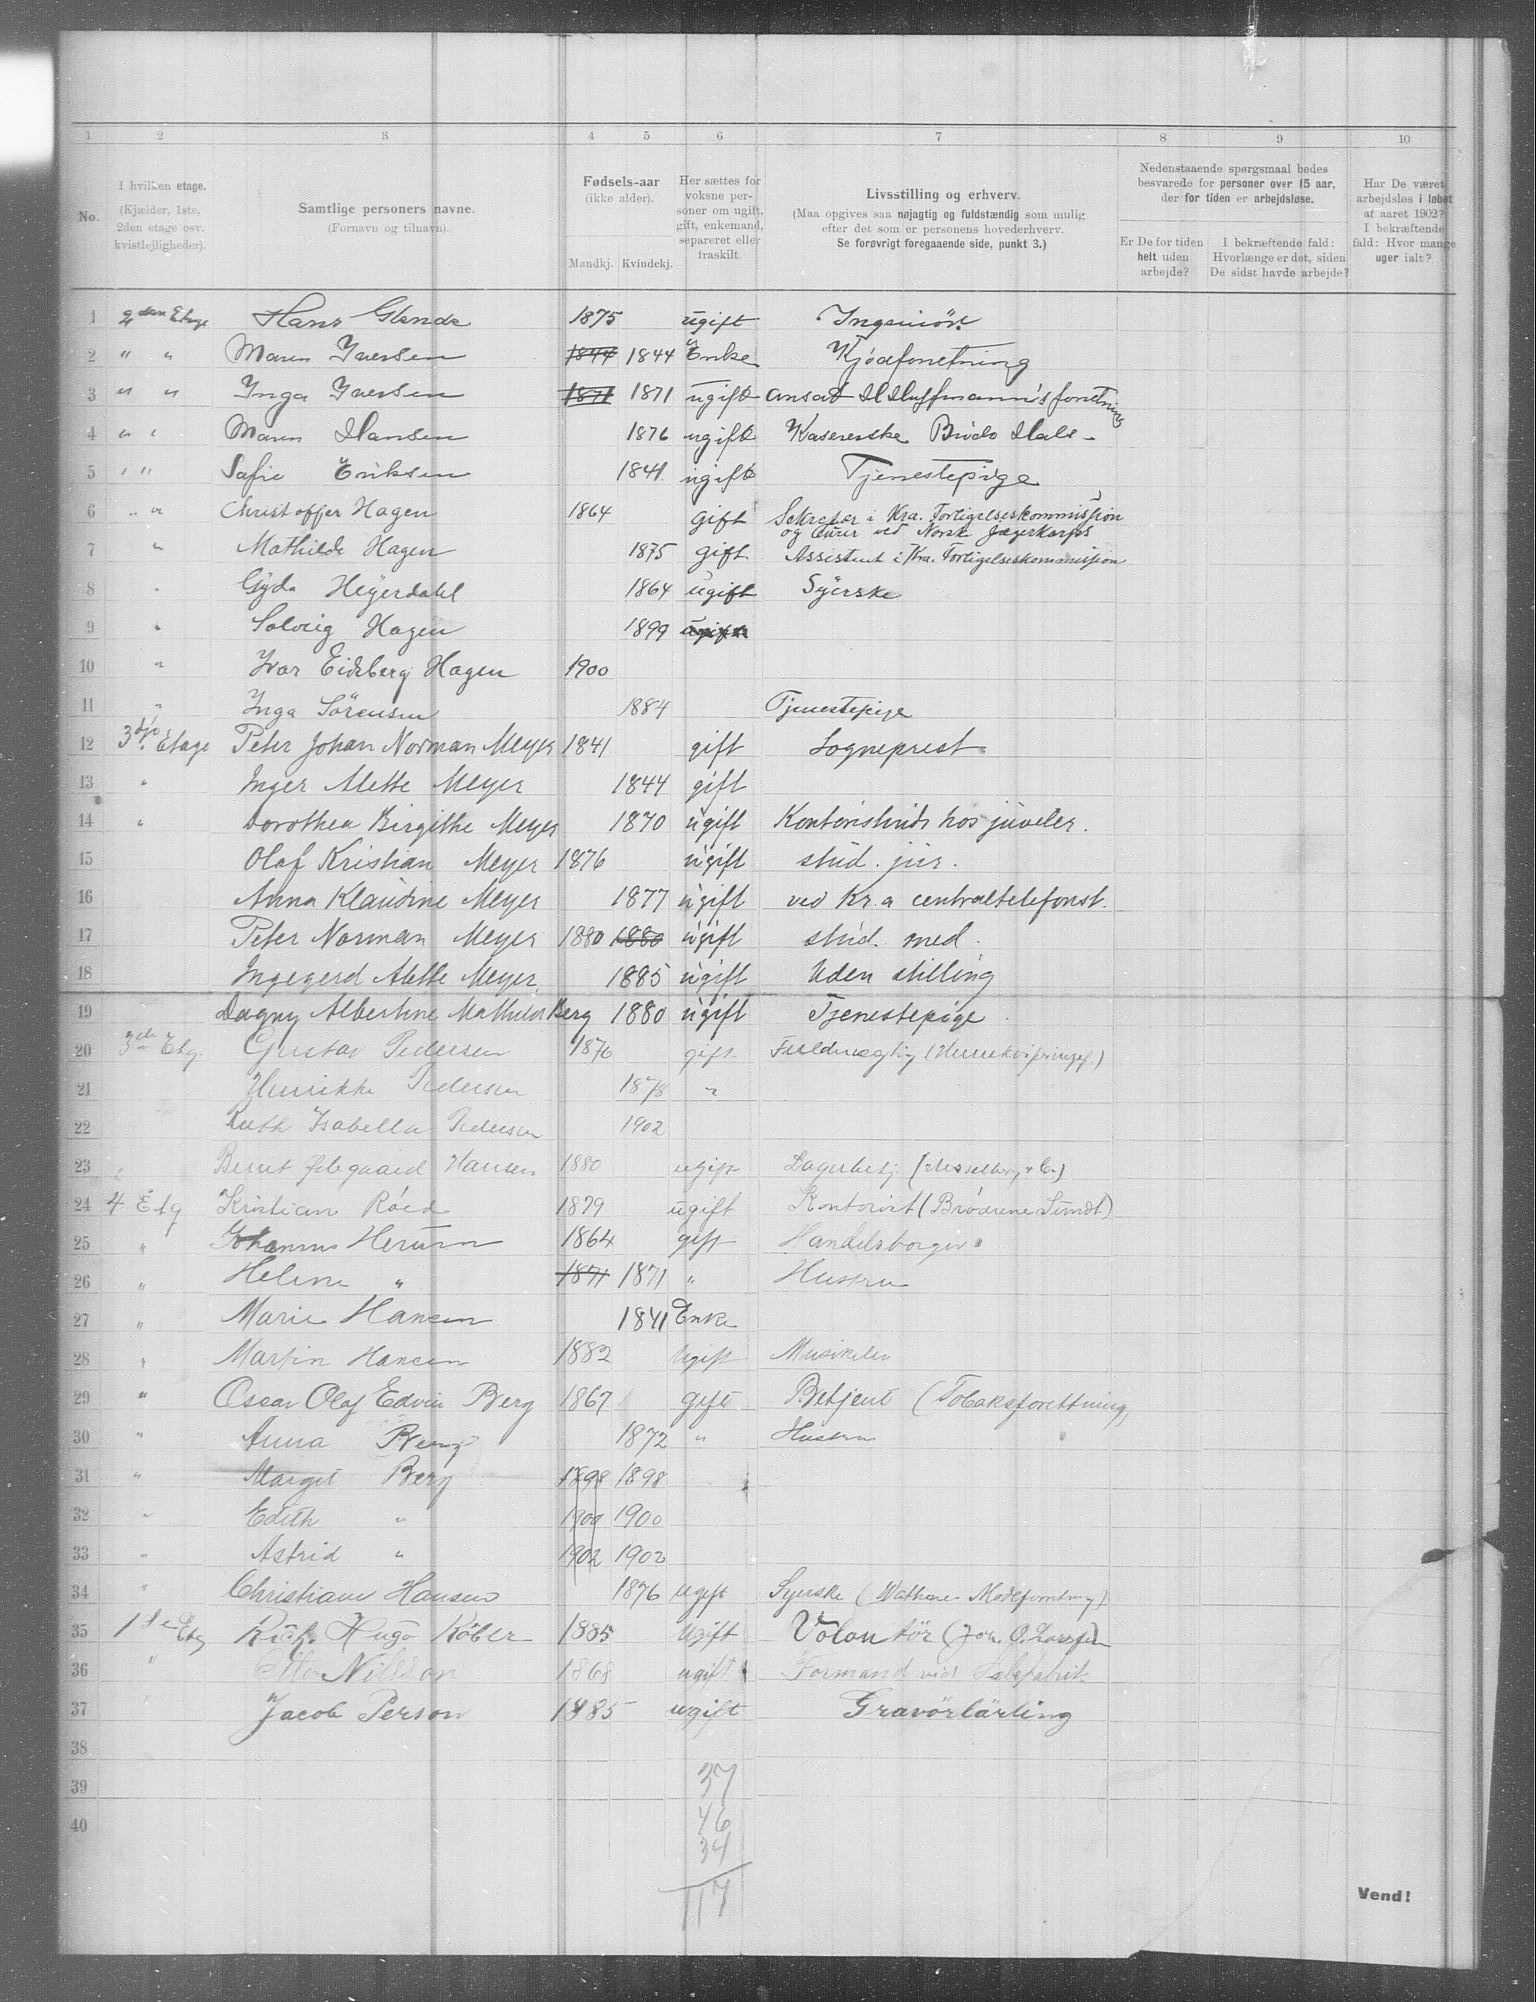 1 2 3 4 5 6 7 8 9 10
No.
I hvilken etage.
(Kjælder, 1ste, 2den etage osv. kvistlejligheder).
Samtlige personers navne.
(Fornavn og tilnavn).
Fødsels-aar
(ikke alder).
Mandkj. Kvindekj.
Her sættes for voksne personer om ugift, gift, enkemand, separeret eller fraskilt.
Livsstilling og erhverv.
(Maa opgives saa nøjagtig og fuldstændig som mulig efter det som er personens hovederhverv.
Se forøvrigt foregaaende side, punkt 3.)
Nedenstaaende spørgsmaal bedes besvarede for personer over 15 aar, der for tiden er arbejdsløse.
Er De for tiden helt uden arbejde?
I bekræftende fald: Hvorlænge er det, siden De sidst havde arbejde?
Har De været arbejdsløs i løbet af aaret 1902? I bekræftende fald: Hvor mange uger ialt?
1 2den Etage Hans 1875 ugift Ingeniör
2 " " Maren Iversen 1844 1844 Enke
3 " " Inga Iversen 1871 1871 ugift ansat
4 " " Maren Hansen 1876 ugift
5 " " Safie Eriksen 1841 ugift Tjenestepige
6 " " Christoffer Hagen 1864 gift Sekretær i Kra. Forligelseskommission
og ved Norsk Jægerkorps
7 " Mathilde Hagen 1875 gift. Assistent i Kra. Forligelseskommission
8 " Gyda Heyerdahl 1864 ugift Syerske
9 " Solveig Hagen 1899 ugift
10 " Ivar Eidsberg Hagen 1900
11 " Inga Sörensen 1884 Tjenestepige
12 3dje Etage Peter Johan Norman Meyer 1841 gift Sogneprest
13 " Inger Alette Meyer 1844 gift
14 " Dorothea Birgithe Meyer 1870 ugift hos juveler.
15 Olaf Kristian Meyer 1876 ugift stud. jur.
16 Anna Klaudine Meyer 1877 ugift ved Kr.a centraltelefonst.
17 Peter Norman Meyer 1880 1880 ugift stud. med.
18 Ingegerd Alette Meyer. 1885 ugift Uden stilling
19 Dagny Albertine Berg 1880 ugift Tjenestepige
20 3die Etg. Gustav Pedersen 1876 gift Fuldmægtig
21 Henrikke Pedersen 1878 "
22 Ruth Isabella Pedersen 1902
23 Bernt Ødegaard Hansen 1880 ugift
24 4 Etg Kristian Röed 1879 ugift Kontorist (Brödrene Sundt)
25 " Johannes 1864 gift Handelsborger
26 " Helene " 1871 1871 " Hustru
27 " Marie Hansen 1841 Enke
28 " Martin Hansen 1882 Ugift
29 " Oscar Olaf Edvin Berg 1867 gift Betjent (Tobaksforettning)
30 " Anna Berg 1872 " Hustru
31 " Margit Berg 1898 1898
32 " Edith " 1900 1900
33 " Astrid " 1902 1902
34 " Christiane Hansen 1876 ugift Syerske
35 1ste Etg Hugo Köbler 1885 Ugift Volontör
36 " Otto Nilsson 1868 ugift Formand ved
37 " Jacob Person 1885 ugift Gravörlärling
38
39
40
37
46
34
117
Vend!